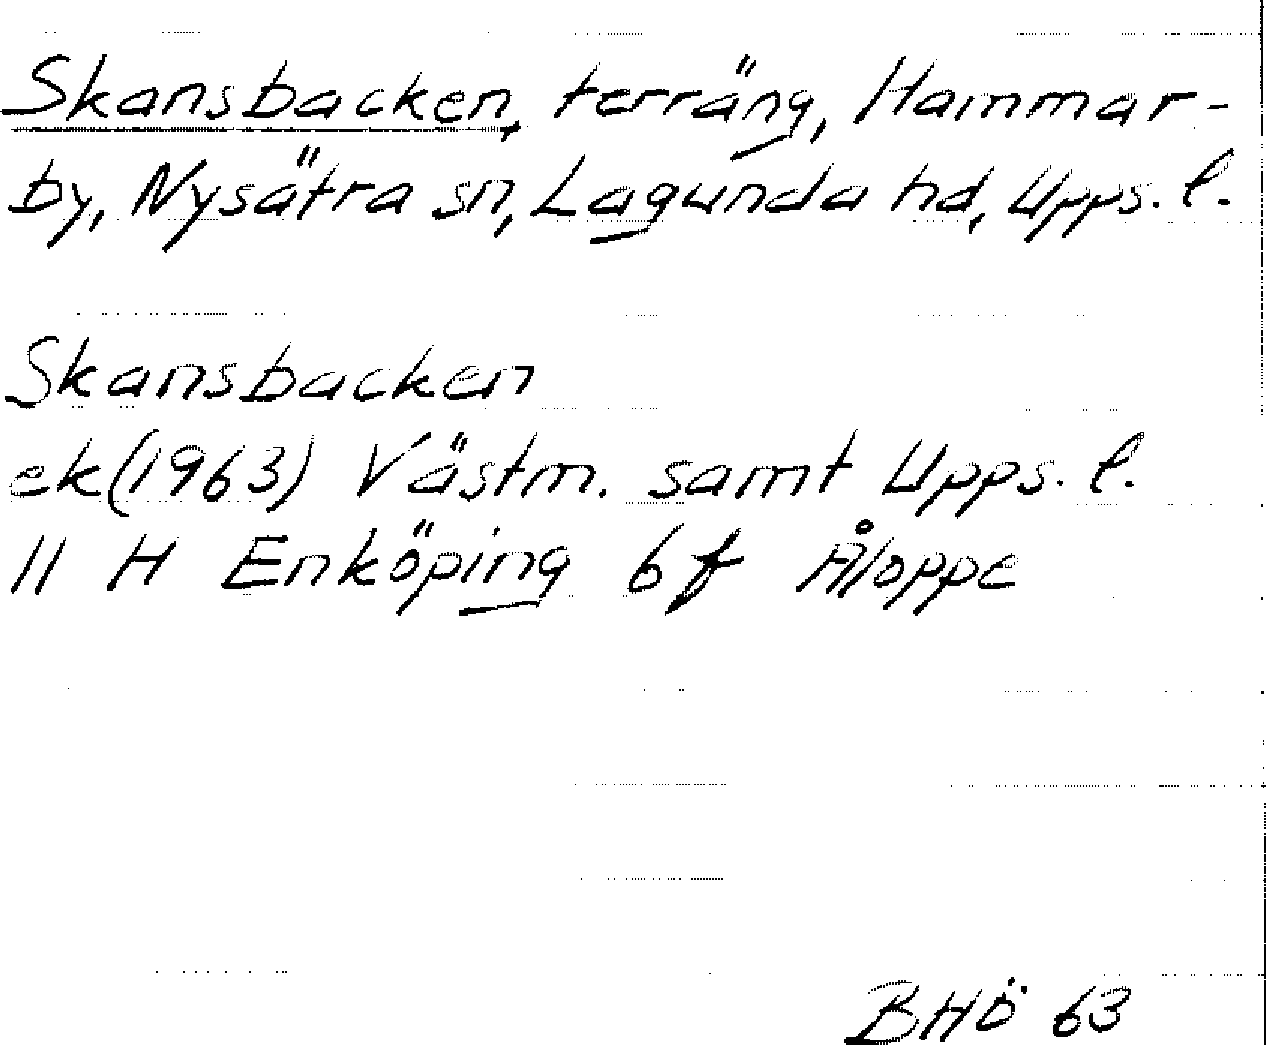 Skansbacken, terräng, Hammar-
by, Nysätra sn, Lagunda hd, Upps. l.
Skansbacken
ek (1963) Västm. samt Upps. l.
11 H Enköping 6 f Åloppe
BHÖ 63